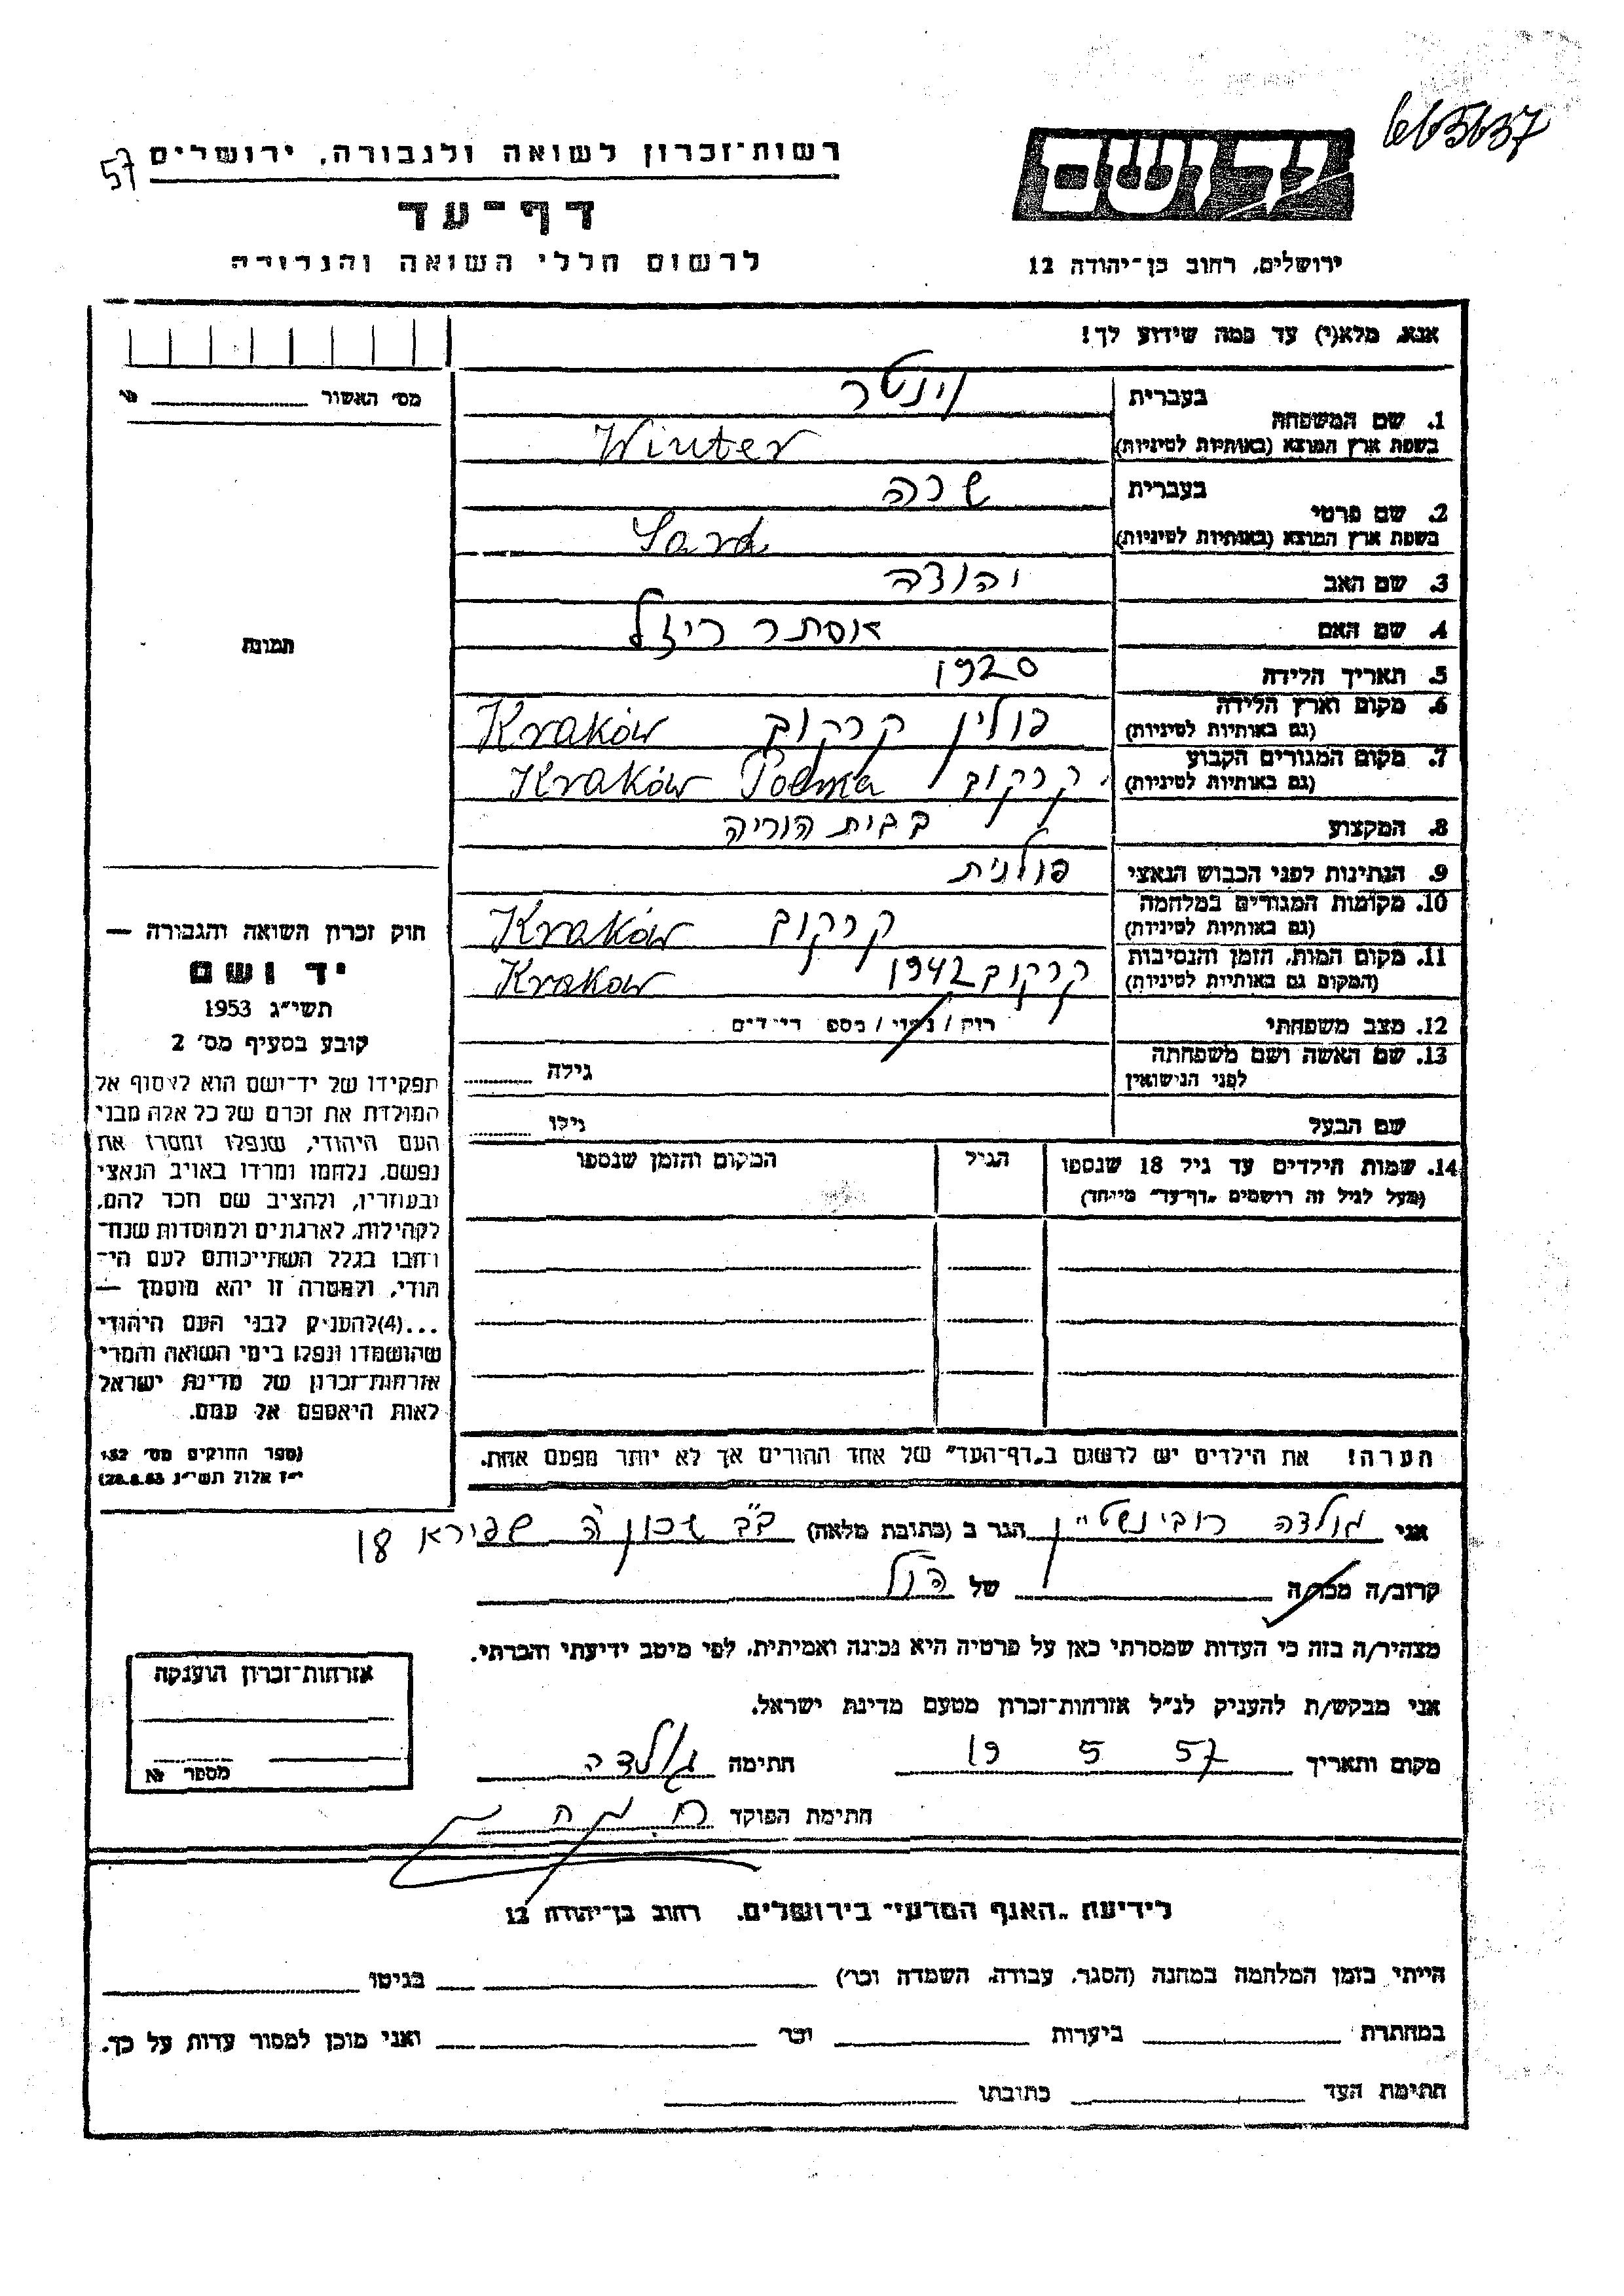 665637
57
רשות־זכרון לשואה ולגבורה, ירושלים
דף־עד
לרשום חללי השואה והגבורה
יד ושם
ירושלים, רחוב בן־יהודה 12
אנא, מלא(י) עד כמה שידוע לך!
מס׳ האשור
בעברית וינטר
1. שם המשפחה
בשפת ארץ המוצא (באותיות לטיניות) Winter
בעברית שרה
2. שם פרטי
בשפת ארץ המוצא (באותיות לטיניות) Sara
3. שם האב יהודה
4. שם האם אסתר רייזל
5. תאריך הלידה 1920
6. מקום וארץ הלידה (גם באותיות לטיניות) פולין קרקוב Kraków
7. מקום המגורים הקבוע (גם באותיות לטיניות) קרקוב Kraków
8. המקצוע בבית הוריה
9. הנתינות לפני הכבוש הנאצי פולנית
10. מקומות המגורים במלחמה (גם באותיות לטיניות) קרקוב Kraków
11. מקום המות, הזמן והנסיבות (המקום גם באותיות לטיניות) קרקוב 1942 Krakow
12. מצב משפחתי רוק / נשוי / מספ ילדים
13. שם האשה ושם משפחתה לפני הנישואין
גילה
שם הבעל
גילו
14. שמות הילדים עד גיל 18 שנספו
(מעל לגיל זה רושמים „דף־עד" מיוחד)
הגיל
המקום והזמן שנספו
הערה! את הילדים יש לרשום ב„דף־העד" של אחד ההורים אך לא יותר מפעם אחת.
תמונה
חוק זכרון השואה והגבורה —
יד ושם
תשי"ג 1953
קובע בסעיף מס׳ 2
תפקידו של יד־ושם הוא לאסוף אל
המולדת את זכרם של כל אלה מבני
העם היהודי, שנפלו ומסרו את
נפשם, נלחמו ומרדו באויב הנאצי
ובעוזריו, ולהציב שם וזכר להם,
לקהילות, לארגונים ולמוסדות שנח־
רבו בגלל השתייכותם לעם הי־
הודי, ולמטרה זו יהא מוסמך —
...(4)להעניק לבני העם היהודי
שהושמדו ונפלו בימי השואה והמרי
אזרחות־זכרון של מדינת ישראל
לאות היאספם אל עמם.
(ספר החוקים מס׳ 132
י"ז אלול תשי"ג 28.8.53)
אני גולדה רובינשטיין הגר ב (כתובת מלאה) ב"ב שכון ה׳ שפירא 18
קרוב/ה מכר/ה של הנ"ל
מצהיר/ה בזה כי העדות שמסרתי כאן על פרטיה היא נכונה ואמיתית, לפי מיטב ידיעתי והכרתי.
אני מבקש/ת להעניק לנ"ל אזרחות־זכרון מטעם מדינת ישראל.
מקום ותאריך 19 5 57 חתימה גולדה
חתימת הפוקד
אזרחות־זכרון הוענקה
מספר №
לידיעת „האגף המדעי" בירושלים, רחוב בן־יהודה 12
הייתי בזמן המלחמה במחנה (הסגר, עבודה, השמדה וכו׳) בגיטו
במחתרת ביערות וכו׳ ואני מוכן למסור עדות על כך.
חתימת העד כתובתו